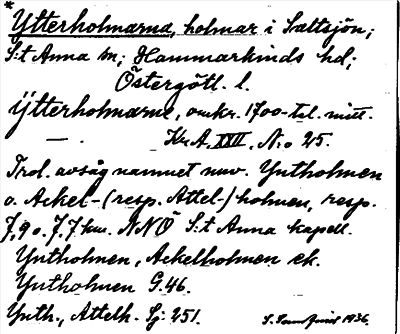 * Ytterholmarna, holmar i Saltsjön;
S:t Anna sn; Hammarkinds hd;
Östergötl. l.
Ytterholmarne, omkr. 1700-tal. mitt.
— Kr.A. XXII. N:o 25.
Trol. avsåg namnet nuv. Yntholmen
o. Ackel-(resp. Attel-)holmen, resp.
7,9 o. 7,7 km. NNÖ S:t Anna kapell.
Yntholmen, Ackelholmen ek.
Yntholmen G.46.
Ynth., Attelh. Sj: 251.
1936